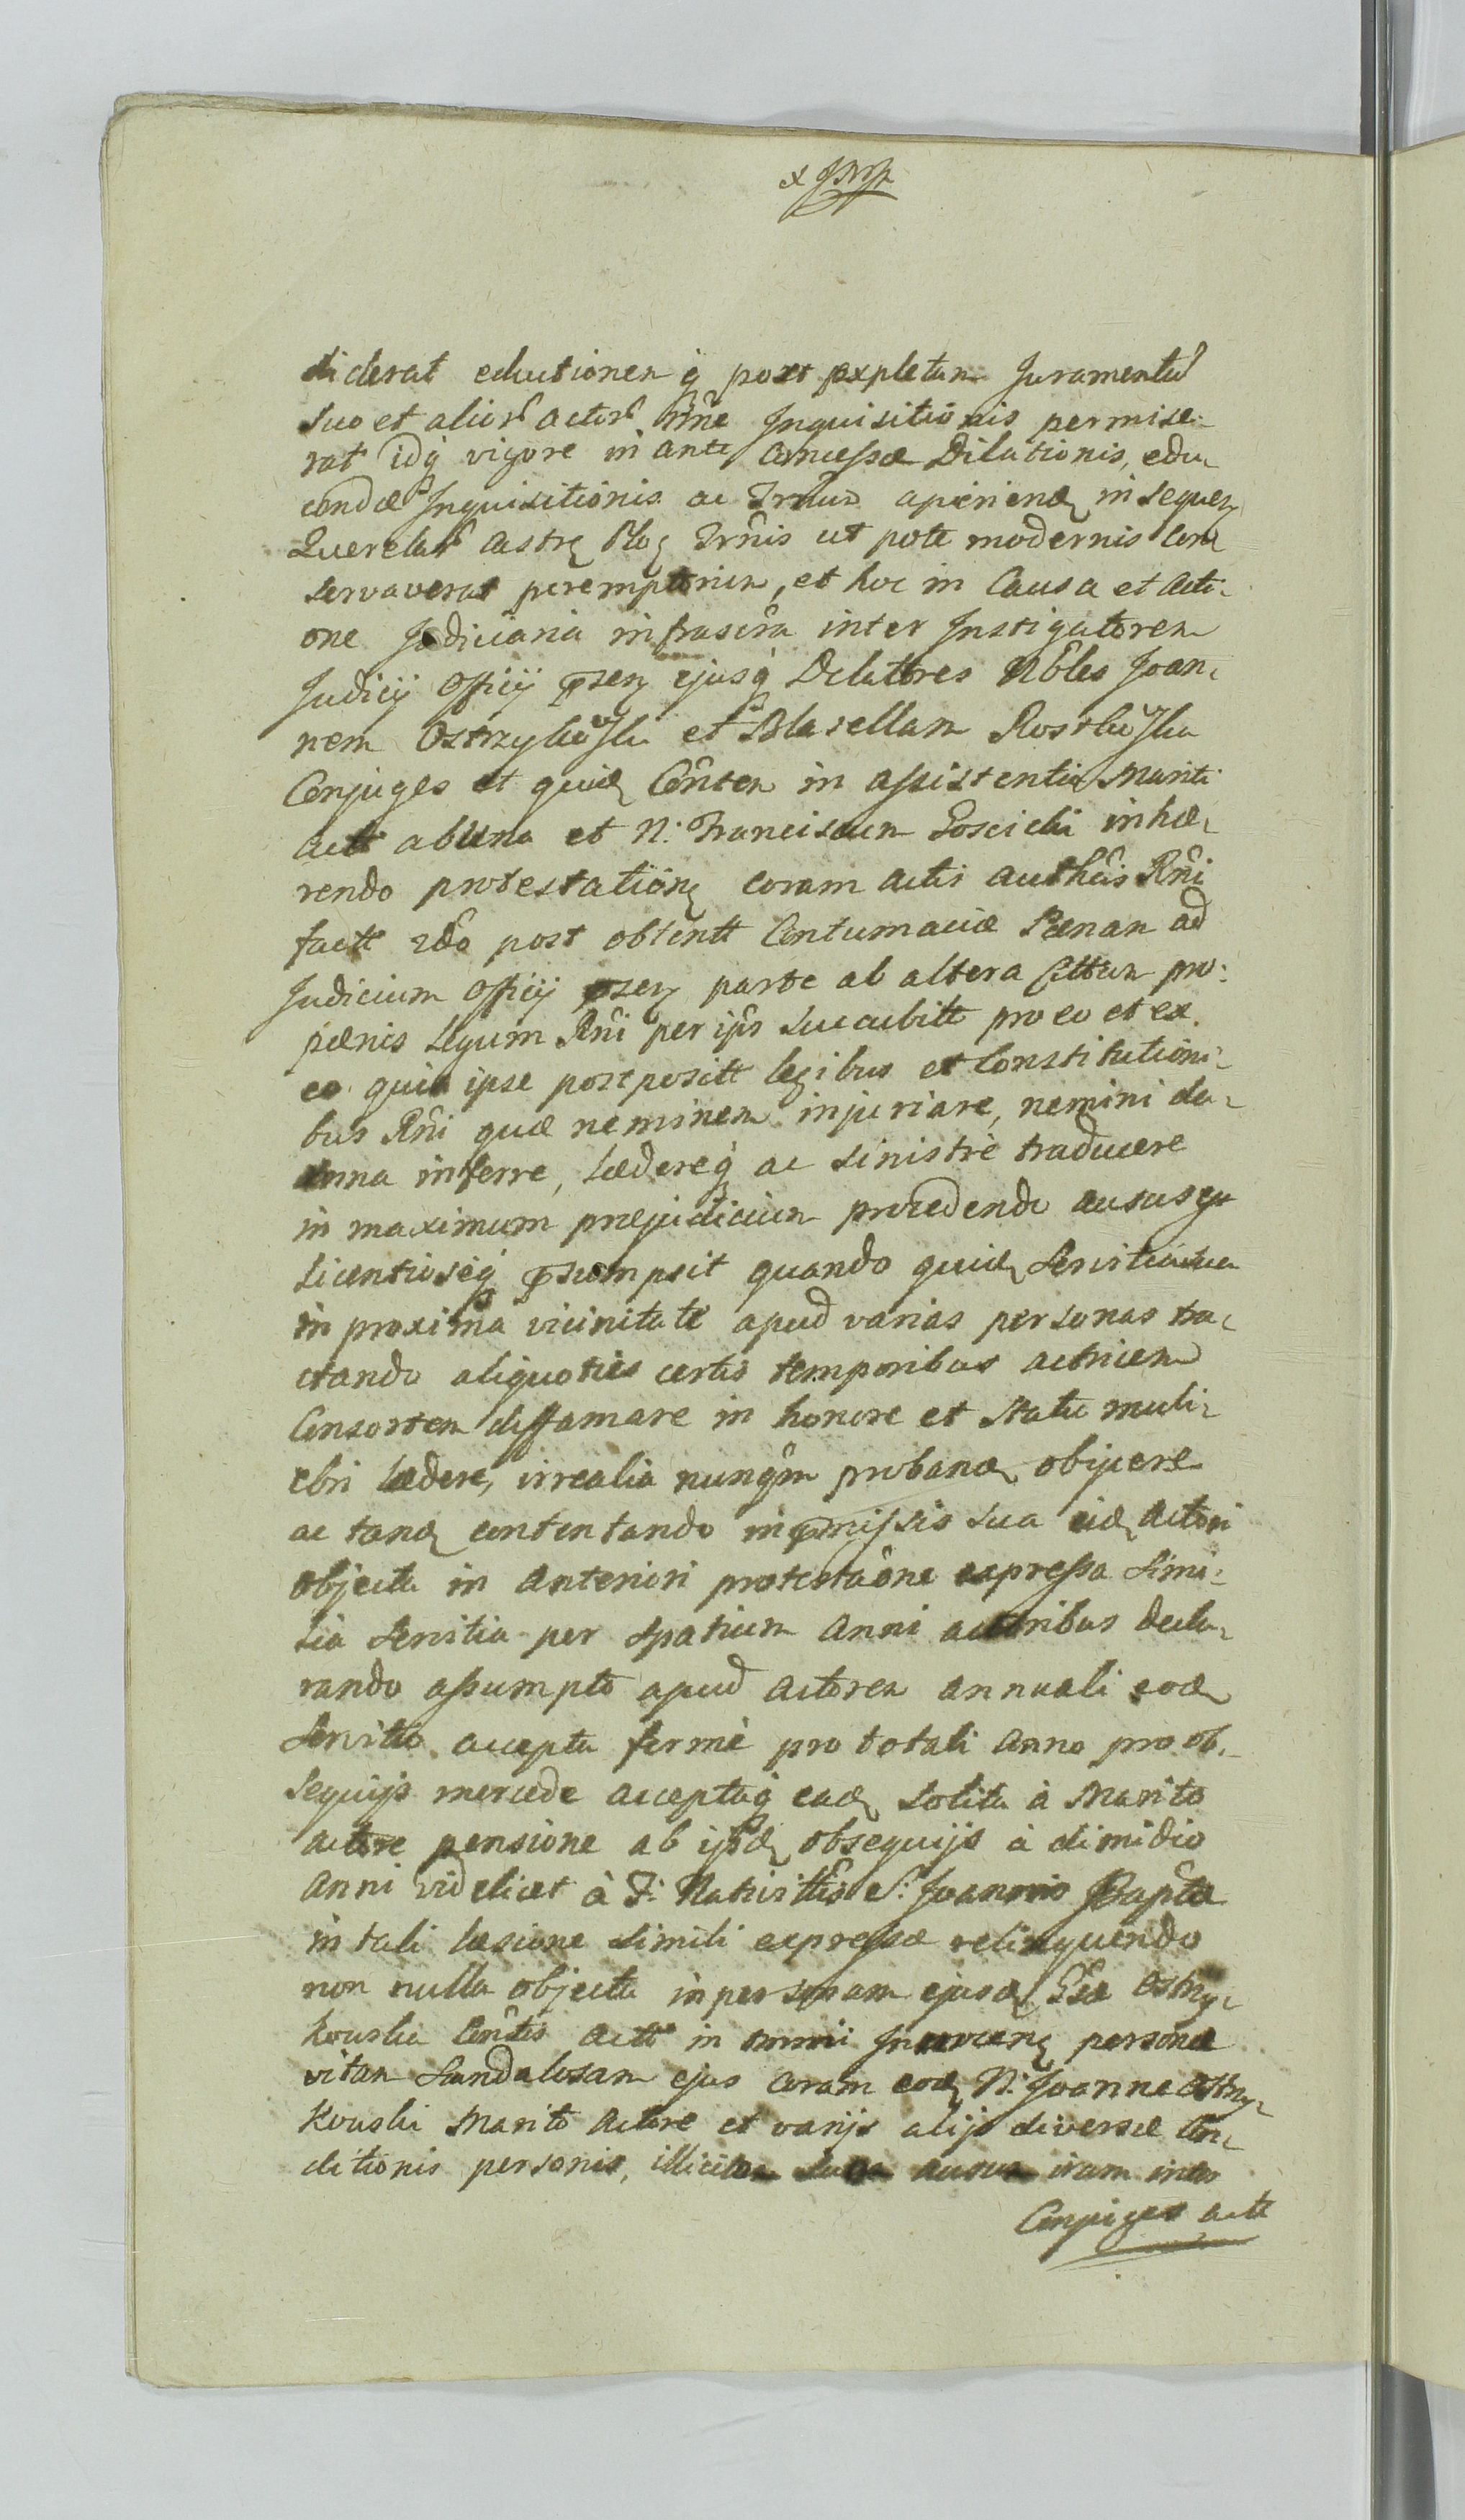 diderat eductionem q̃ post expletum Juramentũ
suo et alior̃ actor̃ nñe Inquisitionis permise-
rat idq̃ vigore in ante concessæ Dilationis, edu-
cendæ Inquisitionis ac aperiend in sequen
Querelar̃ castr ut pote modernis con-
servaverat peremptoriem, et hoc in Causa et acti-
one Judiciaria infrascr̃a inter Instigatorem
Judicij Officij p̃sen ejusq̃ Delatores Nb̃les Joan-
nem Ostrzykow̃ski et Blasellam Rostkow̃ska
Conjuges et quid Cõntem in assistentia Mariti
actt ab una et N: Franciscum Loscicki inhæ-
rendo protestation coram actis auth̃cis Rñi
factt post obtentt Contumaciæ Pænam ad
Judicium Officij p̃sen parte ab altera Cittum pro:
pænis Legum Rñi per ip̃s succubitt pro eo et ex
eo quia ipse postpositt legibus et Constitutioni-
bus Rñi quæ neminem injuriare, nemini da-
mna inferre, lædereq̃ ac sinistrè traducere
in maximum præjudicium procedendo ausus
Licentioseq̃ p̃sumpsit quando quid Servitia sua
in proxima vicinitate apud varias personas tra-
ctando aliquoties certis temporibus actricem
Consortem diffamare in honore et statu muli-
ebri lædere, irrealia nunq̃m proband objicere
ac tand contentando in p̃missis sua eid Actori
objecta in anteriori protestaõne expressa simi-
lia Servitia per spatium Anni actoribus decla-
rando assumpto apud actorem annuali eod
Servitio accepta fermè pro totali anno pro ob-
sequijs mercede acceptaq̃ ead solita à Marito
actore pensione ab ijsd obsequijs à dimidio
Anni videlicet à F: Nativittis S: Joannis Bapt̃æ
in tali læsione simili expressæ relinquendo
non nulla objecta in personam ejusd Gs̃æ Ostrzy-
kowska Cõntis actt in omni persona
vitam Scandalosam ejus coram eod N: Joanne Ostrzy-
kowski Marito Actore et varijs alijs diversæ con-
ditionis personis, illicitos ausus iram inter
Conjuges actt